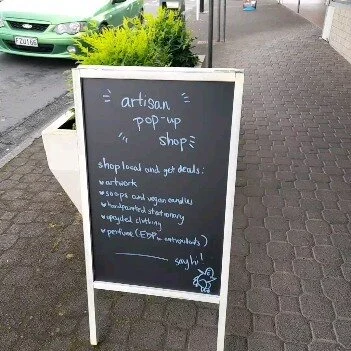 FZU166
artisan
pop-up
shop
shop local and get deals:
artwork
soops and vegan candles
handpainted stationary
upcycled clothing
perfume (EDP
say hi!